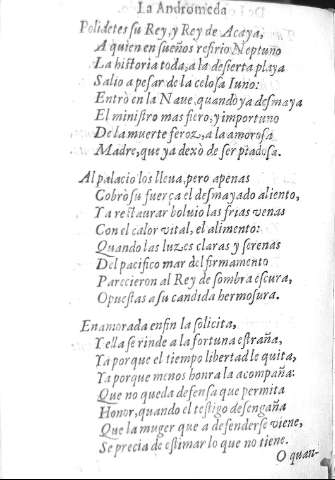 La Andromeda
Polidetes su Rey, y Rey de Acaya,
A quien en sueños refirio Neptuno
La historia toda, a la desierta playa
Salio a pesar de la celosa Iuno:
Entrò en la Naue, quando ya desmaya
El ministro mas fiero, y importuno
De la muerte feroz, a la amorosa
Madre, que ya dexò de ser piadosa.
Al palacio los lleua, pero apenas
Cobrò su fuerça el desmayado aliento,
Y a restaurar boluio las frias venas
Con el calor vital, el alimento:
Quando las luzes claras y serenas
Del pacifico mar del firmamento
Parecieron al Rey de sombra escura,
Opuestas a su candida hermosura.
Enamorada enfin la solicita,
Y ella se rinde a la fortuna estraña,
Ya porque el tiempo libertad le quita,
Ya porque menos honra la acompaña:
Que no queda defensa que permita
Honor, quando el testigo desengaña
Que la muger que a defenderse viene,
Se precia de estimar lo que no tiene.
O quan-